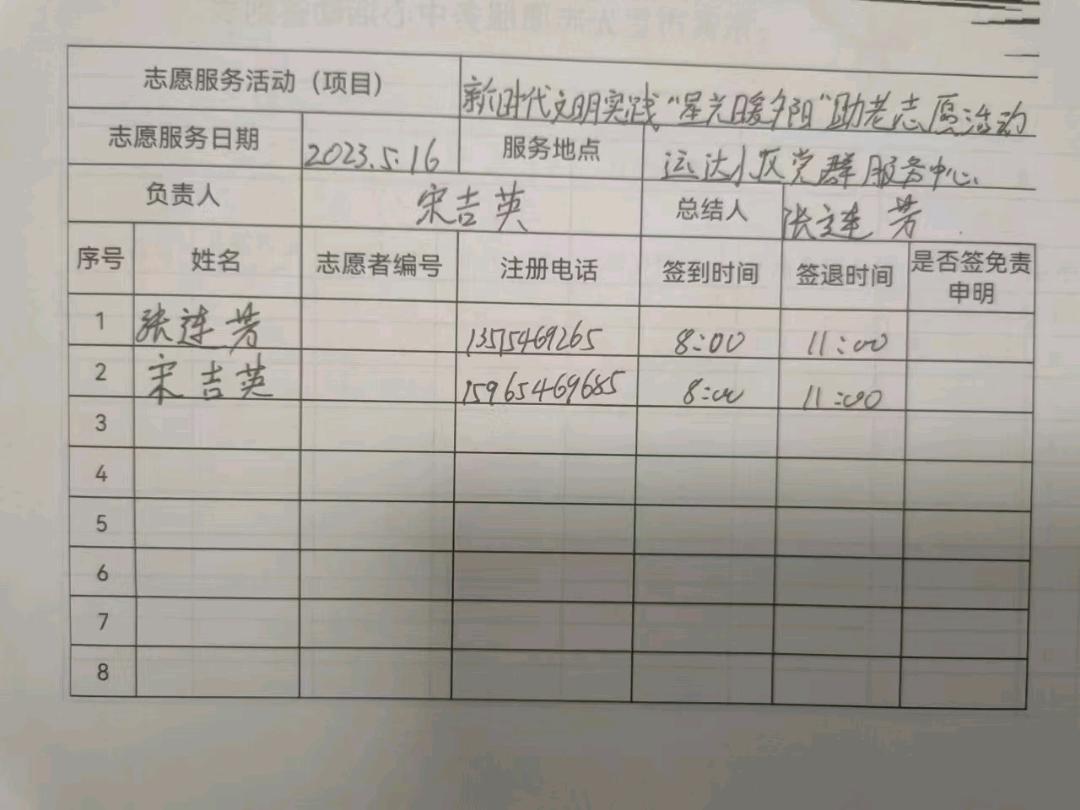 志愿服务活动（项目） 新时代文明实践"星光暖夕阳"助老志愿活动
志愿服务日期 2023.5.16 服务地点 运达小区党群服务中心
负责人 宋吉英 总结人 张连芳
序号 姓名 志愿者编号 注册电话 签到时间 签退时间 是否签免责申明
1 张连芳 13575469265 8:00 11:00
2 宋吉英 15965469685 8:00 11:00
3
4
5
6
7
8